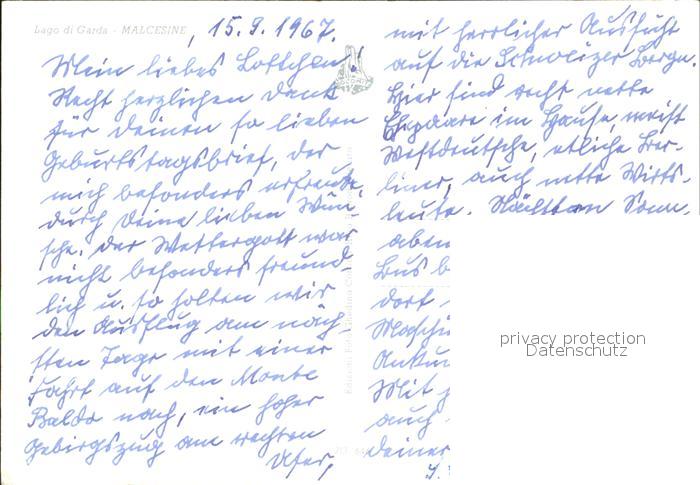 Lago di Garda - MALCESINE
, 15.9.1967.
Mein liebes Lottchen!
Recht herzlichen Dank
für Deinen so lieben
Geburtstagsbrief, der
mich besonders erfreute,
durch Deine lieben Wün-
sche. Der Wettergott war
nicht besonders freund-
lich u. so holten wir
den Ausflug am näch
sten Tage mit einer
Fahrt auf den Monte
Baldo nach, ein hoher
Gebirgszug am rechten
Ufer,
mit herrlicher Aussicht
auf die Schweizer Berge.
Hier sind recht nette
Ehepaare im Hause, meist
Westdeutsche, etliche Ber-
liner, auch nette Wirts-
leute. Nächsten Sonn-
aben
Bus b
dorf
Maschi
Ankun
Mit
auch
Deiner
privacy protection
Datenschutz